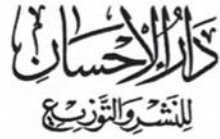 دَارُ الإِحْسَان
لِلنَّشْرِ وَالتَّوْزِيع